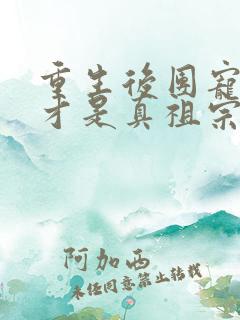 重生後團寵
才是真祖宗
阿加西
未经同意禁止转载